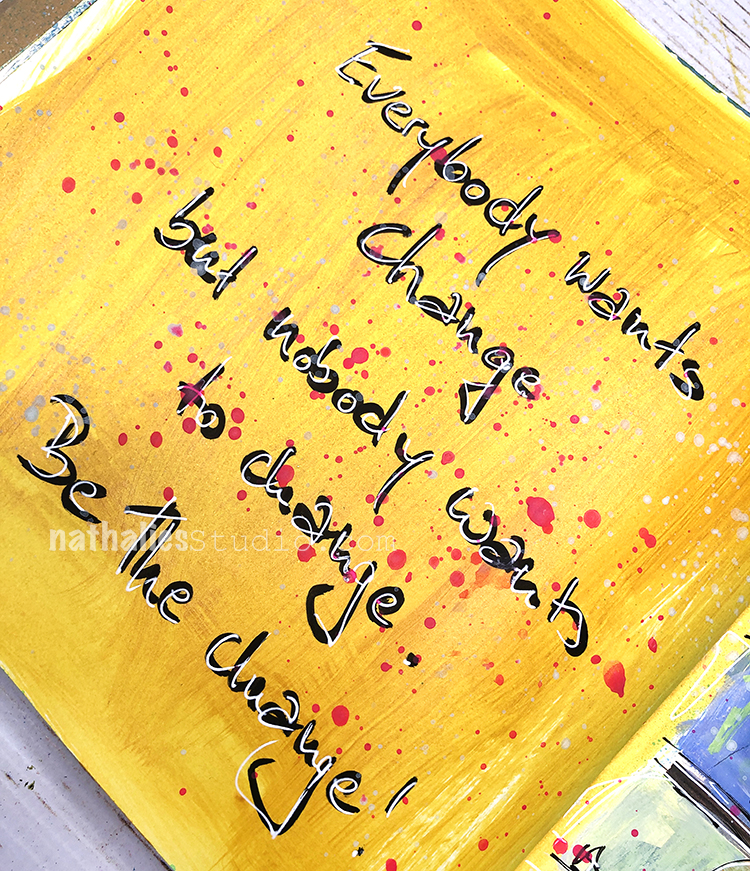 Everybody wants
Change
but nobody wants
to change.
Be the change!
nathaliesStudio.com